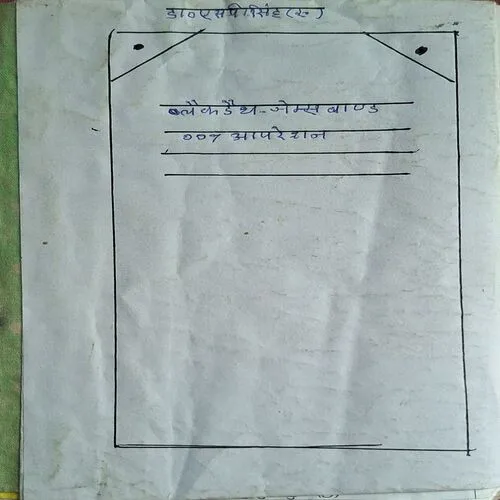 डा०एसपीसिंह(रु)
ब्लैकडैथ-जेम्स बाण्ड
००७ आपरेशन